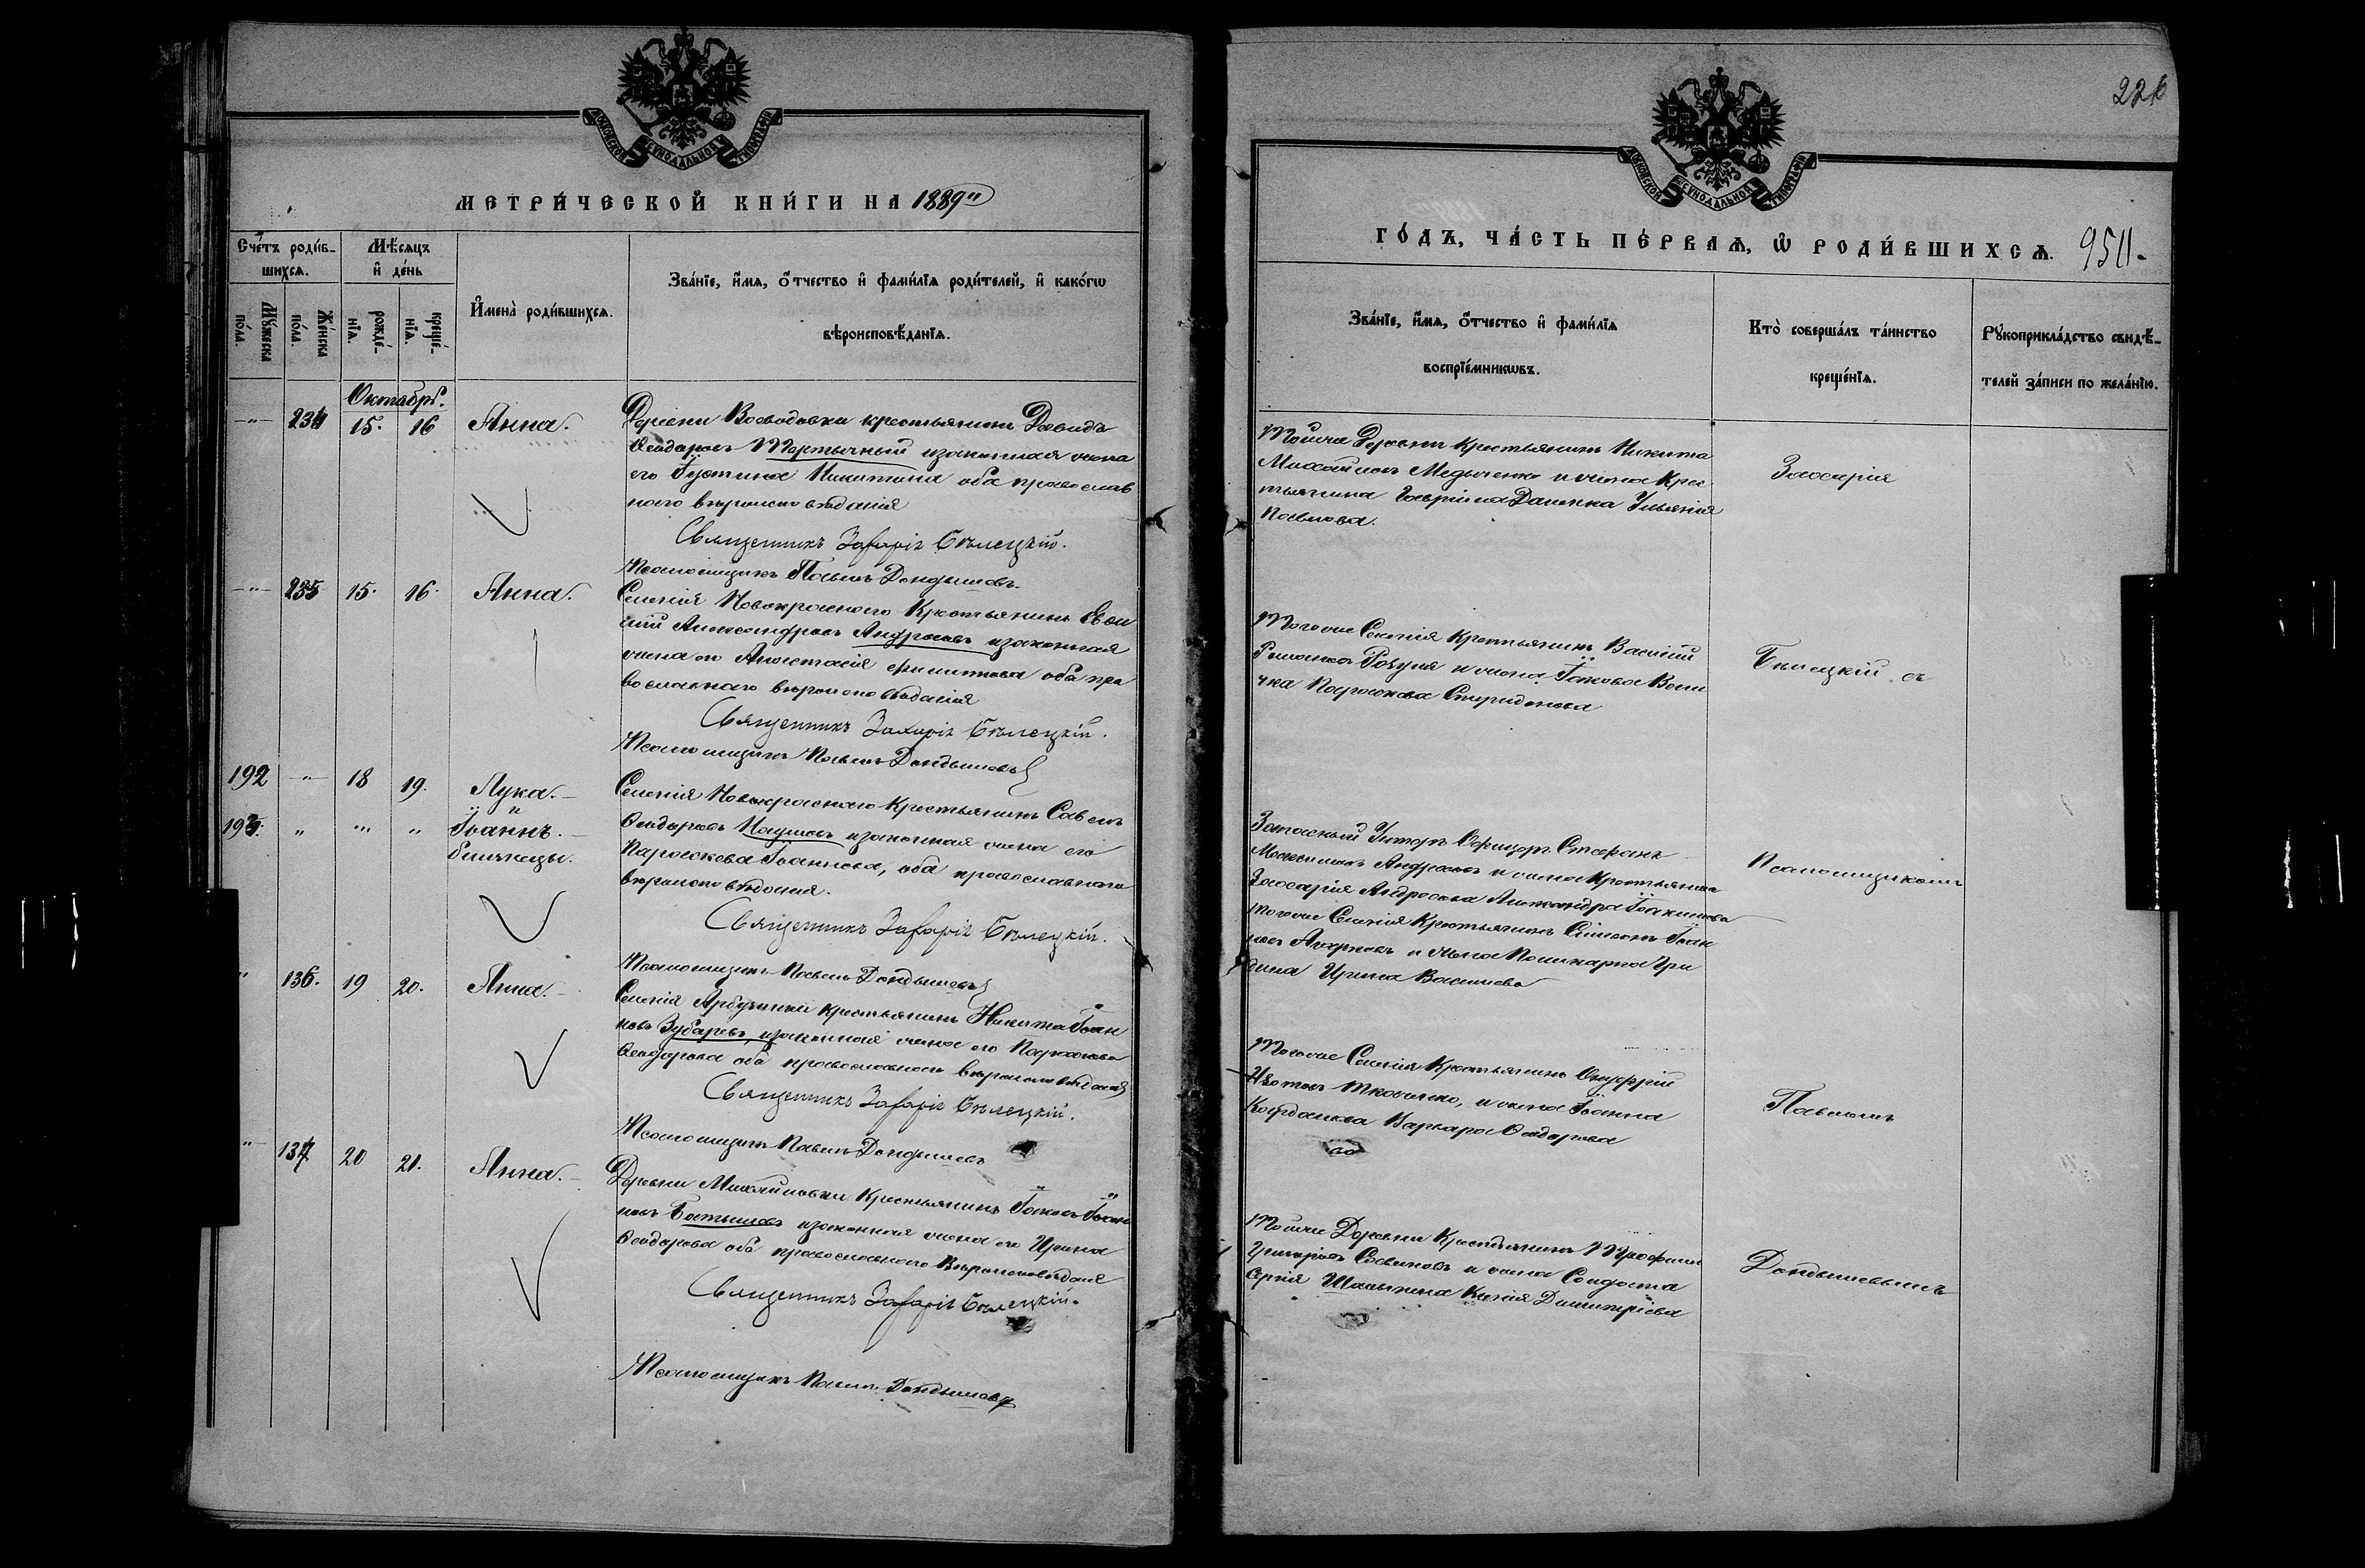 МОСКОВСКОЙ СѴНОДАЛЬНОЙ ТИПОГРАФІИ
МЕТРИ́ЧЕСКОЙ КНИ́ГИ НА 1889
Сче́тъ роди́в-
шихсѧ.
Мѣ́сѧцъ
и҆ де́нь
Мꙋ́жеска по́ла.
Же́нска по́ла.
рожде́-нїѧ.
креще́-нїѧ.
И҆мена̀ роди́вшихсѧ.
Зва́нїе, и҆́мѧ, ѻ҆́тчество и҆ фами́лїѧ роди́телей, и҆ како́гѡ
вѣроисповѣ́данїѧ.
Октябрь.
234 15. 16 Анна.
Деревни Воеводовки крестьянинъ Давидъ
Ѳеодоровъ и законная жена
его Іустина Никитина оба православ
наго вѣроисповѣданія
Священникъ Захарія Бѣлецкій.
Псаломщикъ Павелъ Дондышевъ.
235 15. 16. Анна.
Селенія Новокраснаго Крестьянинъ
Александровъ Андросовъ и законная
жена его Анастасія Филиппова оба пра
вославнаго вѣроисповѣданія
Священникъ Захарія Бѣлецкій.
Псаломщикъ Павелъ Дондышевъ
192 18 19. Лука.
и
193. Іоаннъ.
близнецы.
Селенія Новокраснаго Крестьянинъ Савелъ
Ѳеодоровъ Наумовъ и законная жена его
Параскева Іоаннова, оба православнаго
вѣроисповѣданія.
Священникъ Захарія Бѣлецкій.
Псаломщикъ Павелъ Дондышевъ
136. 19 20. Анна.
Селенія Арбузинки крестьянинъ Никита Іоан
новъ Зубаревъ, и законная жена его Параскева
Ѳеодорова оба православнаго вѣроисповѣданія
Священникъ Захарія Бѣлецкій.
Псаломщикъ Павелъ Дондышевъ
137 20 21. Анна.
Деревни Михайловки Крестьянинъ Іаковъ Іоан
новъ и законная жена его Ирина
Ѳеодорова оба православнаго Вѣроисповѣданія
Священникъ Захарія Бѣлецкій.
Псаломщикъ Павелъ Дондышевъ
226
МОСКОВСКОЙ СѴНОДАЛЬНОЙ ТИПОГРАФІИ
ГО́ДЪ, ЧА́СТЬ ПЕ́РВАѦ, Ѡ҆ РОДИ́ВШИХСѦ. 950
Зва́нїе, и҆́мѧ, ѻ҆́тчество и҆ фами́лїѧ
воспрїе́мникѡвъ.
Кто̀ соверша́лъ та́инство
креще́нїѧ.
Рꙋкоприкла́дство свидѣ́-
телей за́писи по жела́нїю.
Тойже Деревни Крестьянинъ Никита
Михайловъ и жена Крес
тьянина Гавріила Даленка Ульянія
Павлова.
Захарія
Тогоже Селенія Крестьянинъ Василій
и жена Іакова
Параскева Спиридонова
Бѣлецкій съ
Запасный Унтеръ Офицеръ Стефанъ
Максимовъ Андросовъ и жена Крестьянина
Захарія Андросова Александра Іоакимова
тогоже Селенія Крестьянинъ Симеонъ Іоан
новъ и жена Поликарпа
Ирина Васильева
Псаломщикомъ
Тогоже Селенія Крестьянинъ Онуфрій
Ткаченко, и жена Іоанна
Варвара Ѳеодорова
Павломъ
Тойже Деревни Крестьянинъ Трофимъ
Григоріевъ Савиновъ и жена Солдата
Сергія Ксенія Димитріева
Дондышевымъ